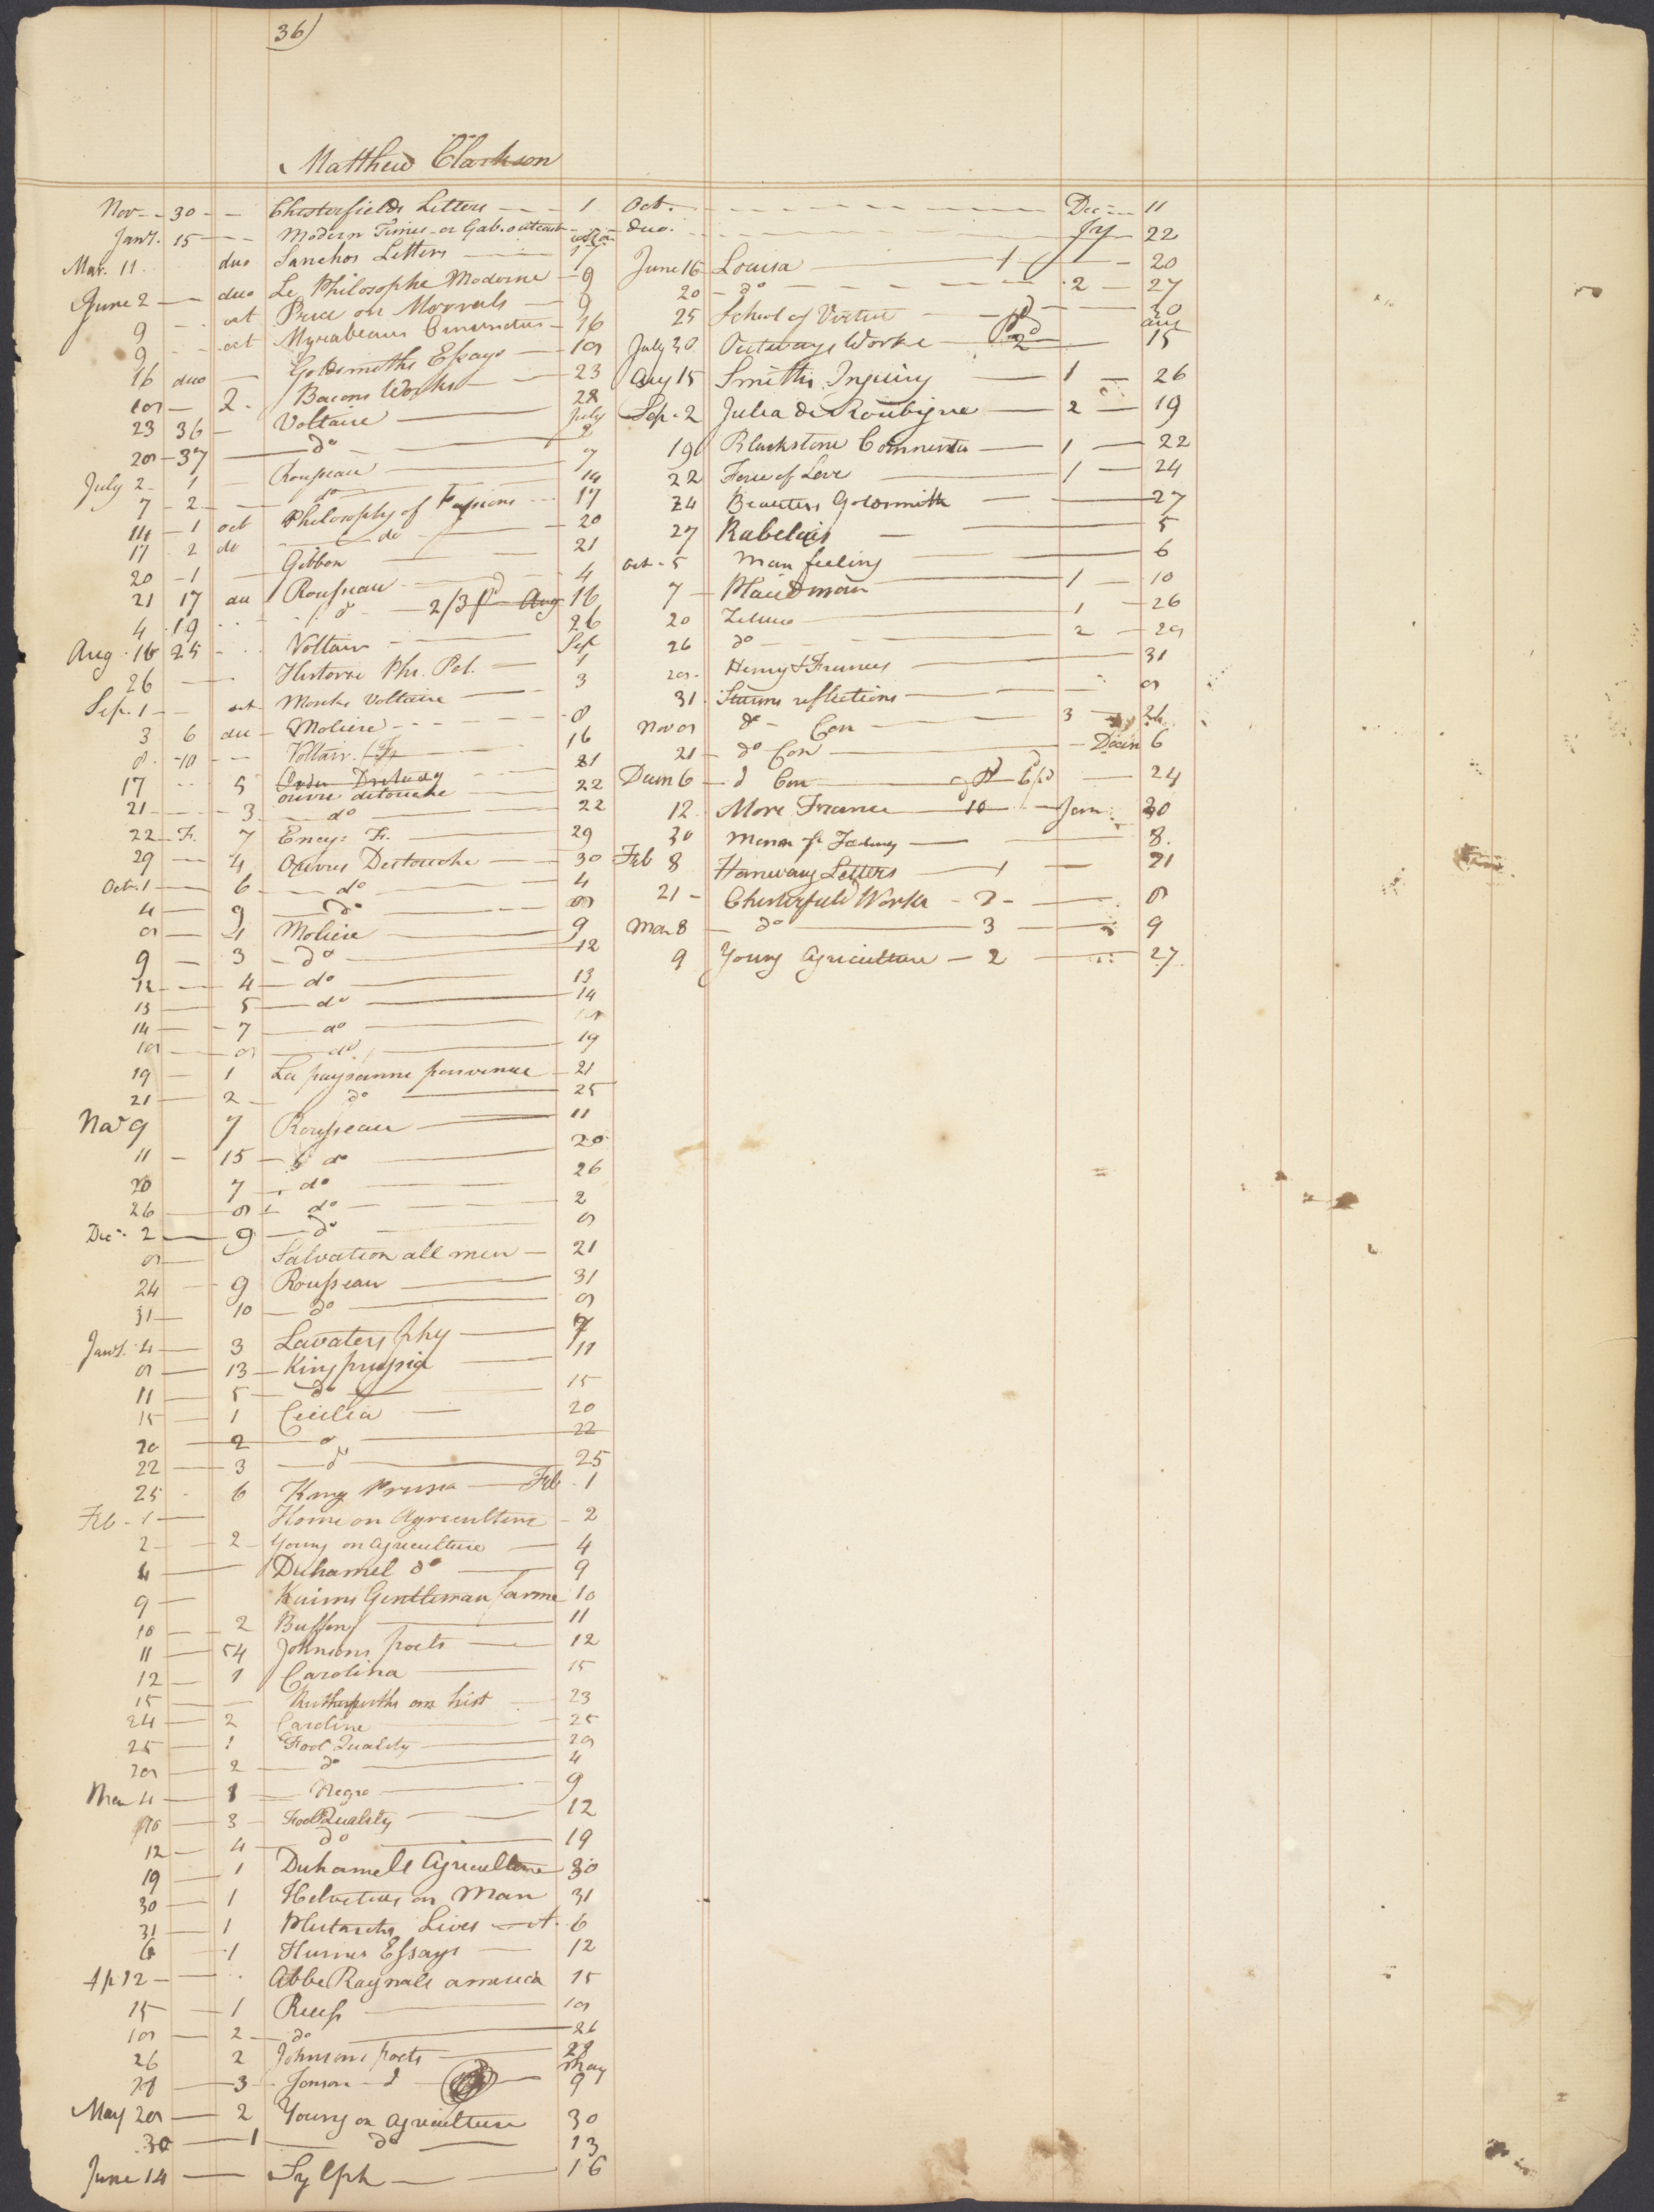 36)
Matthew Clarkson
Nov 30 Chesterfields Letters 1 Oct. Dec 11
Jany. 15 Modern Times or Gab. outcast duo. Jy 22
Mar. 11 duo Sanchos Letters 17 June 16 Louisa 1 20
June 2 duo Le Philosophe Moderne 9 20 do 2 27
9 oct Price on Morrals 9 25 School of Virtue 30
9 oct Myrabeaus 16 July 30 Outways Works 2 aug 15
16 duo Goldsmiths Essays 18 Aug 15 Smiths Inquiry 1 26
18 2 Bacons Works 23 Sep. 2 Julia de Roubigne 2 19
23 36 Voltaire 28 19 Blackstone Comments 1 22
28 37 do July 2 22 Force of Love 1 24
July 2 1 Rousseau 7 24 Beauties Goldsmith 27
7 2 do 14 27 Rabelais 5
14 1 oct Philosophy of Passions 17 Oct. 5 Man feeling 6
17 2 do do 20 7 Plaindman 1 10
20 1 Gibbon 21 20 Zeluco 1 26
21 17 du Rousseau 4 26 do 2 28
4 19 do 2/3 pd Aug 16 28 Henry & Frances 31
Aug 16 25 Voltair 26 31 Sturms reflections 8
26 Historie Phi. Pol. Sep 1 Nov 8 do Con 3 21
Sep. 1 oct Monks Voltaire 3 21 do Con Decm 6
3 6 du Moliere 8 Decm 6 d Con pd 24
8 10 Voltair. Fr 16 12 More France 10 Jan 30
17 5 ouvre detouche 21 30 Man of Feeling 8
21 3 do 22 Feb 8 Hanway Letters 1 21
22 Fr. 7 Ency: Fr. 22 21 Chesterfield Works 2 8
29 4 Ouvres Destouche 29 Mar 8 do 3 9
Oct. 1 6 do 30 9 Young Agriculture 2 27
4 9 do 4
8 1 Moliere 8
9 3 do 9
12 4 do 12
13 5 do 13
14 7 do 14
18 8 do 18
19 1 La paysanne parvenue 19
21 2 do 21
25
Nov 9 7 Rousseau 11
11 15 do 20
20 7 do 26
26 8 do 2
Dec. 2 9 do 8
8 Salvation all men 21
24 9 Rousseau 31
31 10 do 8
Jany. 4 3 Lavaters phy 7
8 13 King prussia 11
11 5 do 15
15 1 Cicilia 20
20 2 d 22
22 3 d 25
25 6 King Prusia Feb 1
Feb 1 Home on Agriculture 2
2 2 Young on Agriculture 4
4 Duhamel do 9
9 Kaims Gentleman farme 10
10 2 Buffon 11
11 54 Johnsons poets 12
12 1 Carolina 15
15 hist 23
24 2 Caroline 25
25 1 Fool Quality 28
28 2 do 4
Mar 4 1 Negro 9
10 3 Fool Quality 12
12 4 do 19
19 1 Duhamels Agriculture 30
30 1 Helvetius on Man 31
31 1 Plutarchs Lives 6
6 1 Humes Essays 12
Ap 12 Abbe Raynals america 15
15 1 Ruess 18
18 2 do 26
26 2 Johnsons poets 28
28 3 Jonson d May 9
May 28 2 Young on Agriculture 30
30 1 do 13
June 14 Sylph 16